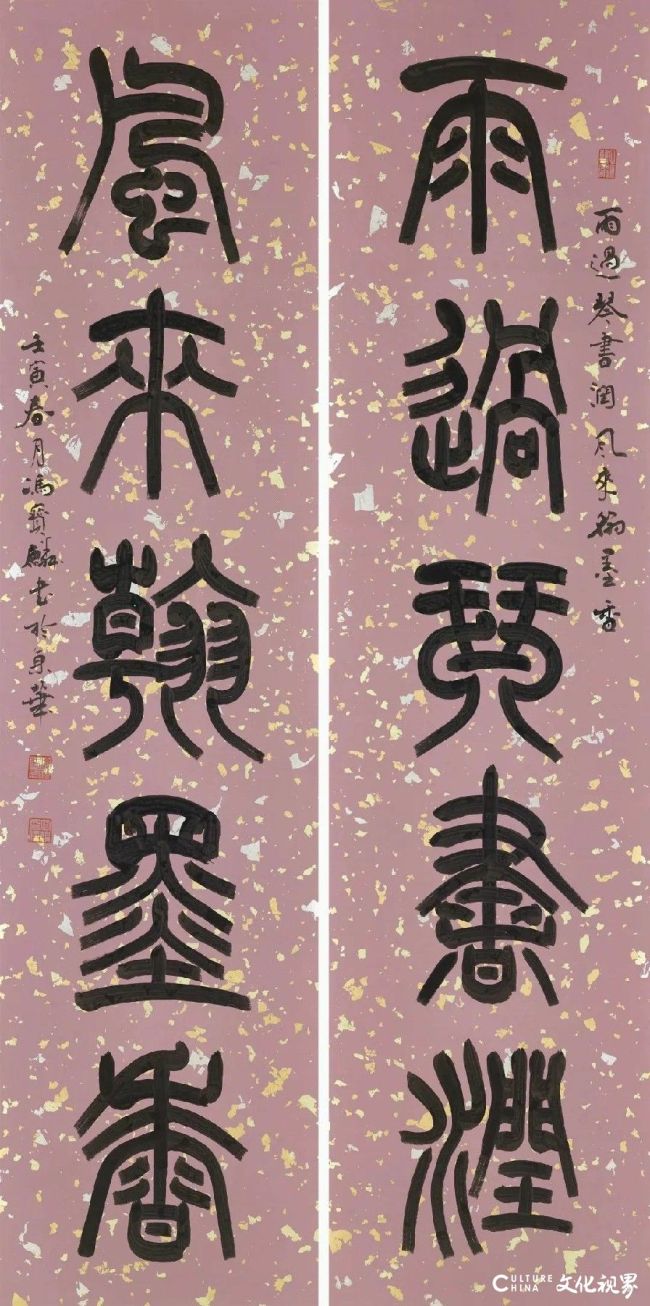 雨過琴書潤
雨過琴書潤风来翰墨香
風來翰墨香
壬寅春月冯宝麟书於京華
CULTURE CHINA 文化视界